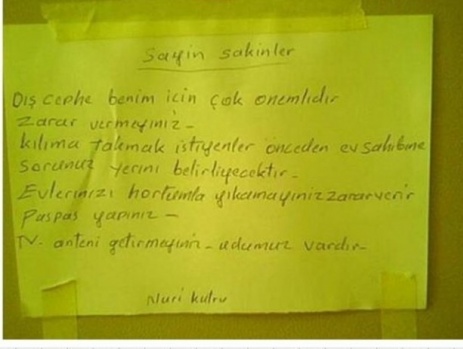 Sayin sakinler
Dış cephe benim icin çok onemlidir
Zarar vermeyiniz -
kilima takmak istiyenler önceden ev sahibine
Sorunuz yerini belirliyecektir -
Evlerinizi hortumla yıkamayınız zarar verir
Paspas yapınız -
TV. anteni getirmeyiniz - udumuz vardır -
Nuri kutru